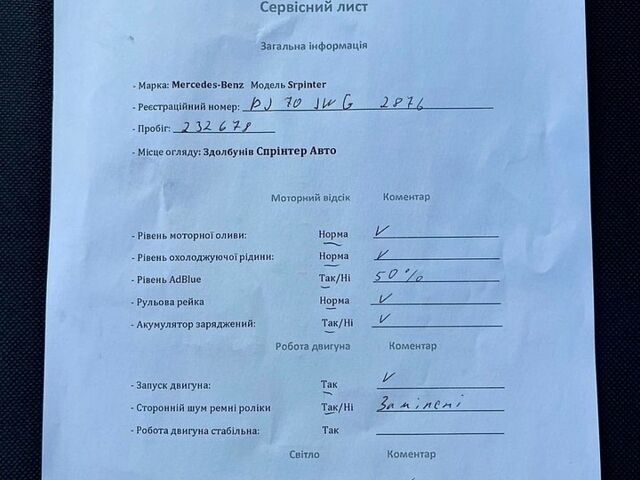 Сервісний лист
Загальна інформація
- Марка: Mercedes-Benz Модель Srpinter
- Реєстраційний номер: DJ 70 JWG 2876
- Пробіг: 232678
- Місце огляду: Здолбунів Спрінтер Авто
Моторний відсік Коментар
- Рівень моторної оливи: Норма V
- Рівень охолоджуючої рідини: Норма V
- Рівень AdBlue Так/Ні 50%
- Рульова рейка Норма V
- Акумулятор заряджений: Так/Ні V
Робота двигуна Коментар
- Запуск двигуна: Так V
- Сторонній шум ремні роліки Так/Ні Замінені
- Робота двигуна стабільна: Так
Світло Коментар